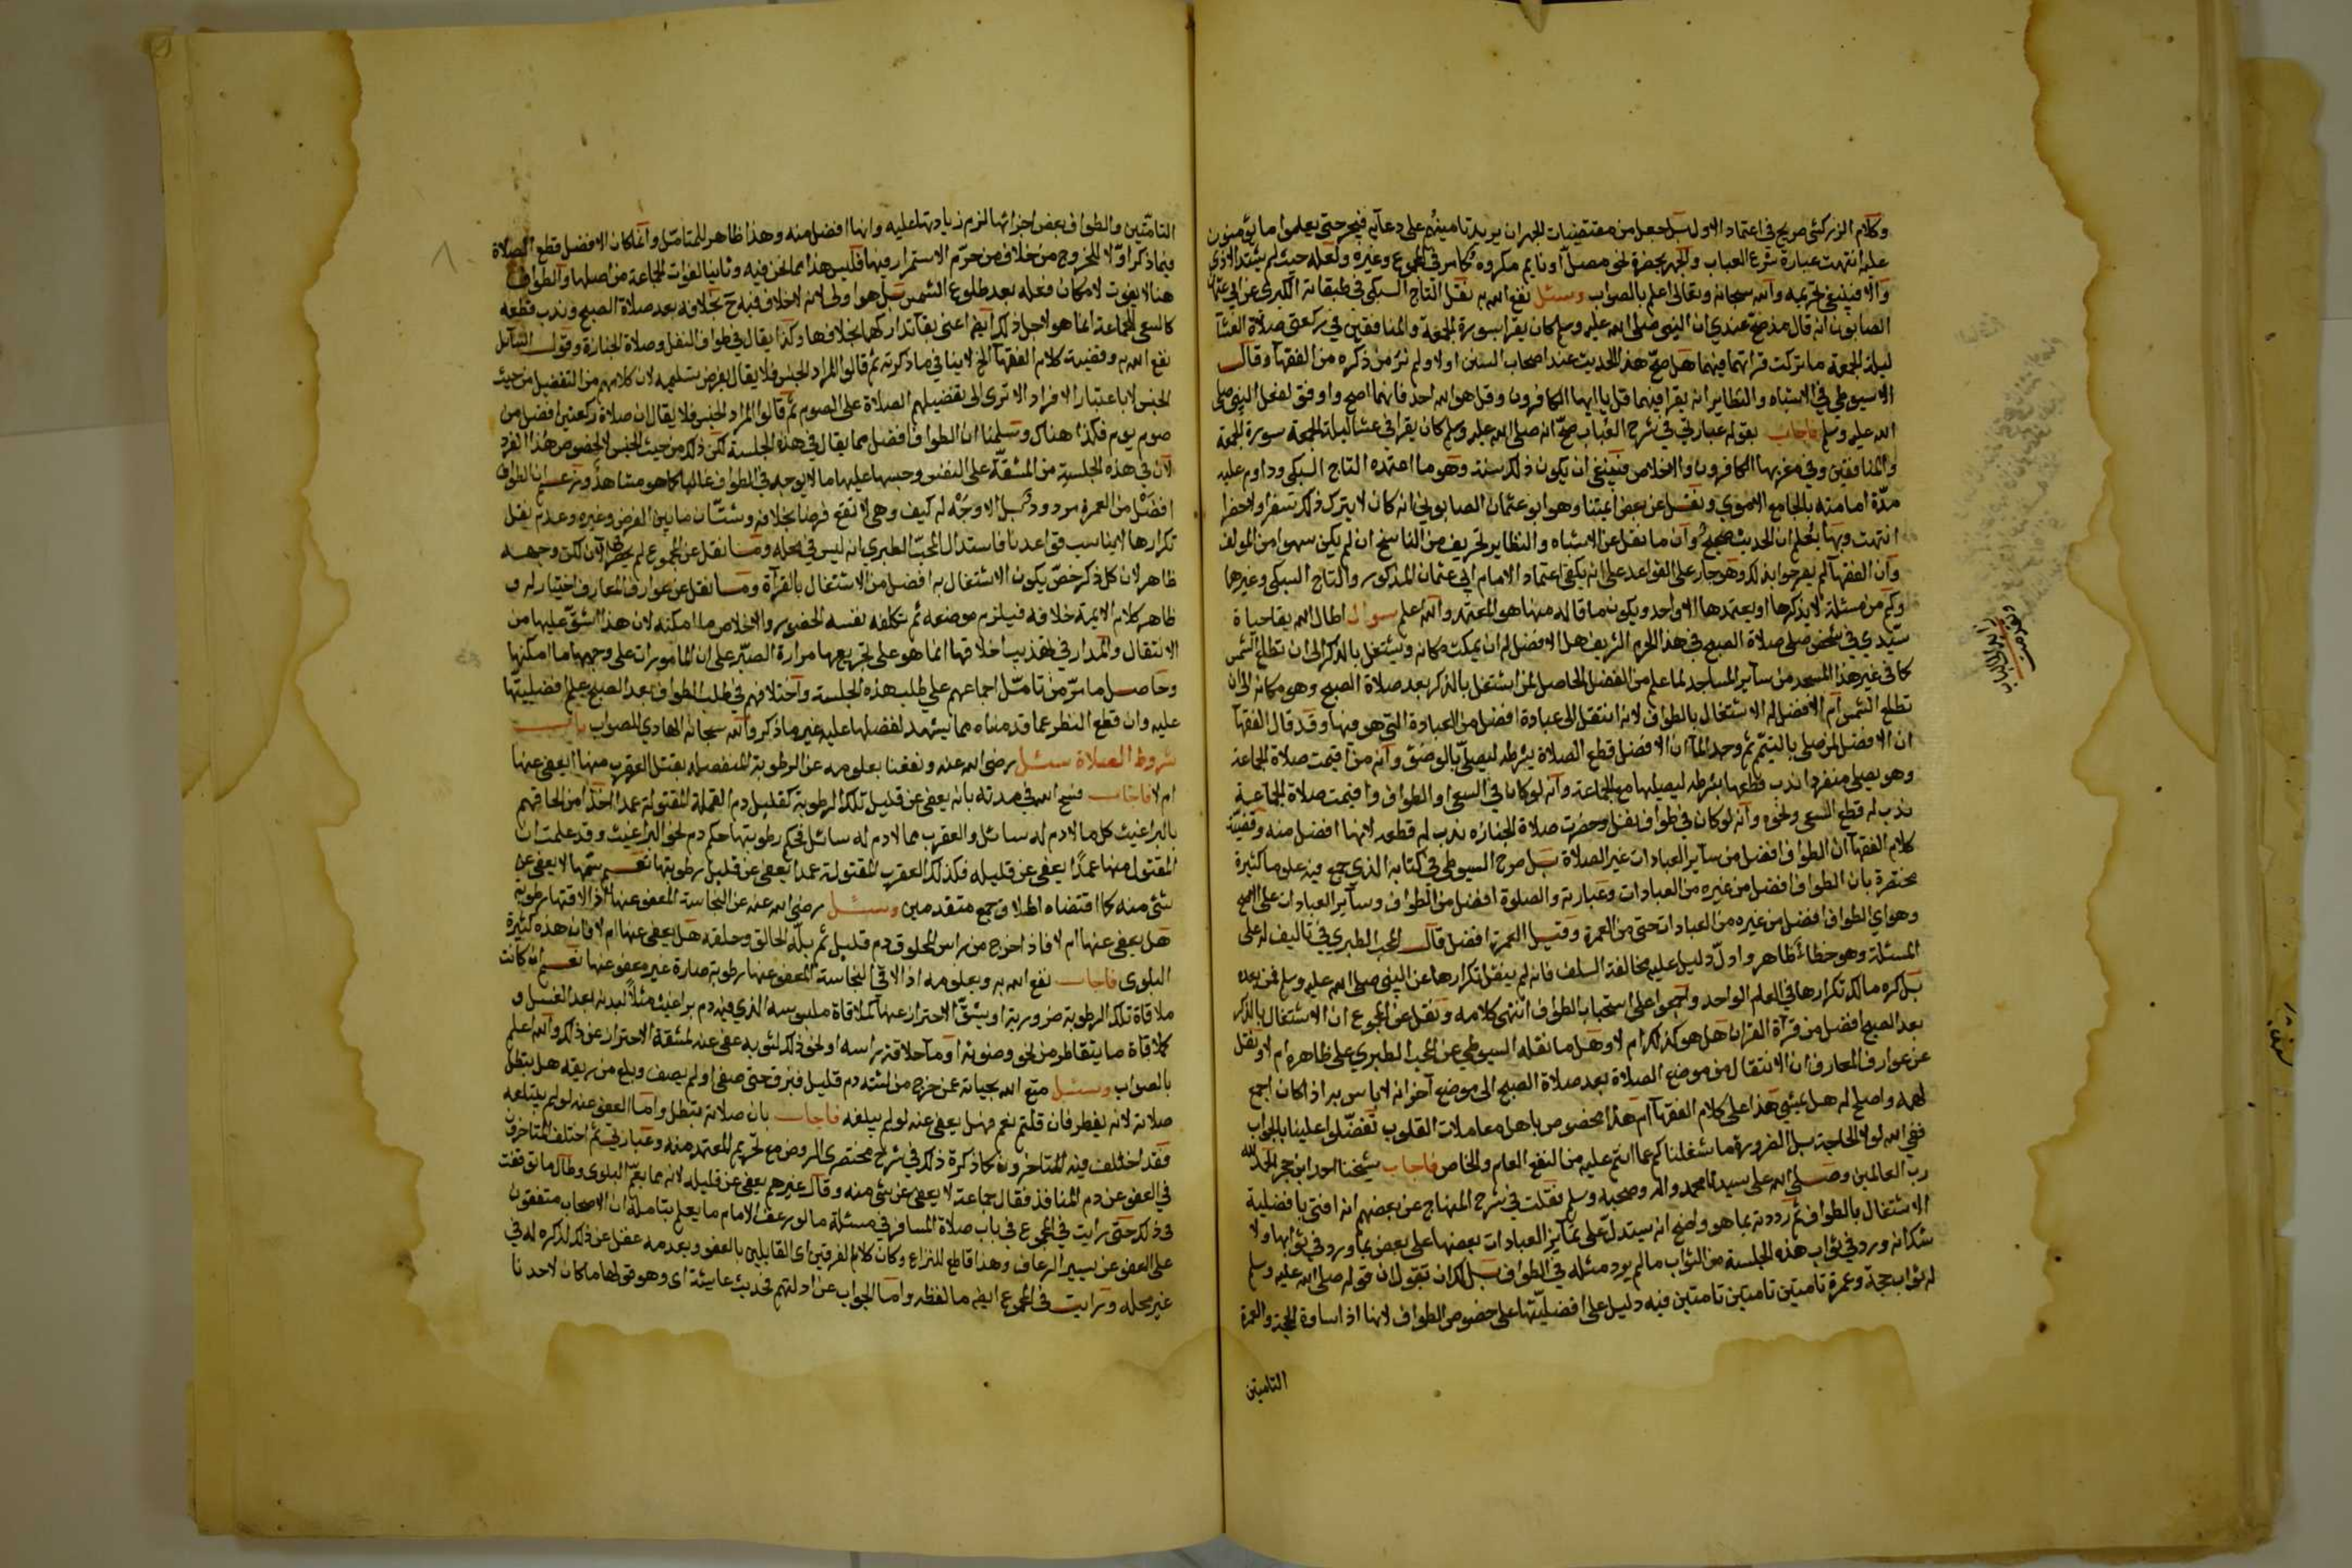 وكلام الزركشي صريح في اعتماد الاول بل جعل من مقتضيات الجهر ان يريد تامينهم على دعائه فيجهر حتى يعلموا ما يؤمنون
عليه انتهت عبارة شرح العباب والجهر بحضرة نحو مصل او نايم مكروه كما في المجموع وغيره ولعله حيث لم يشتد الاذى
والا فينبغي تحريمه والله سبحانه وتعالى اعلم بالصواب وسئل نفع الله به نقل التاج السبكي في طبقاته الكبرى عن ابي عثمان
الصابوني انه قال مذ صح عندي ان النبي صلى الله عليه وسلم كان يقرا بسورة الجمعة والمنافقين في ركعتي صلاة العشا
ليلة الجمعة ما تركت قراتهما فيهما هل صح هذا الحديث عند اصحاب السنن اولا ولم نر من ذكره من الفقهآ وقال
الاسيوطي في الاشباه والنظاير انه يقرا فيهما قل يا ايها الكافرون وقل هو الله احد فانهما اصح واوفق لفعل النبي صلى
الله عليه وسلم فاجاب بقوله عبارتي في شرح العباب صح انه صلى الله عليه وسلم كان يقرا في عشا ليلة الجمعة سورة الجمعة
والمنافقين وفي مغربها الكافرون والاخلاص فينبغي ان يكون ذلك سنة وهو ما اعتمده التاج السبكي وداوم عليه
مدة امامته بالجامع الاموي ونقل عن بعض ائمتنا وهو ابو عثمان الصابوني انه كان لا يترك ذلك سفرا ولا حضرا
انتهت وبها يعلم ان الحديث صحيح وان ما نقل عن الاشباه والنظاير تحريف من الناسخ ان لم يكن سهوا من المولف
وان الفقهآ لم يصرحوا بذلك وهو جار على القواعد على انه يكفي اعتماد الامام ابي عثمان المذكور والتاج السبكي وغيرهما
وكم من مسئلة لا يذكرها او يعتمدها الا واحد ويكون ما قاله منها هو المعتمد والله اعلم سوال اطال الله بقا حياة
سيدي في شخص صلى صلاة الصبح في هذا الحرم الشريف هل الافضل له ان يمكث مكانه ويشتغل بالذكر الى ان تطلع الشمس
كما في غير هذا المسجد من سآير المساجد لما علم من الفضل الحاصل لمن اشتغل بالذكر بعد صلاة الصبح وهو مكانه الى ان
تطلع الشمس ام الافضل له الاشتغال بالطواف لانه انتقل الى عبادة افضل من العبادة التي هو فيها وقد قال الفقهآ
ان الافضل لمن صلى بالتيمم ثم وجد المآ ان الافضل قطع الصلاة بشرطه ليصلي بالوضؤ وانه من اقيمت صلاة الجماعة
وهو يصلي منفردا ندب قطعها بشرطه ليصليها مع الجماعة وانه لو كان في السعي او الطواف واقيمت صلاة الجماعة
ندب له قطع السعي ونحوه وانه لو كان في طواف نفل وحضرت صلاة الجنازه ندب له قطعه لانها افضل منه وقضية
كلام الفقهآ ان الطواف افضل من سآير العبادات غير الصلاة بل صرح السيوطي في كتابه الذي جمع فيه علوما كثيرة
مختصرة بان الطواف افضل من غيره من العبادات وعبارته والصلوة افضل من الطواف وسآير العبادات على الاصح
وهو اي الطواف افضل من غيره من العبادات حتى من العمرة وقيل العمرة افضل قال المحب الطبري في تاليف له على
المسئلة وهو خطاء ظاهر وادل دليل عليه مخالفة السلف فانه لم ينقل تكرارها عن النبي صلى الله عليه وسلم فمن بعده
بل كره مالك تكرارها في العام الواحد واجمعوا على استحباب الطواف انتهى كلامه ونقل عن المجموع ان الاشتغال بالذكر
بعد الصبح افضل من قرآة القران هل هو كذلك ام لا وهل ما نقله السيوطي عن المحب الطبري على ظاهره ام لا ونقل
عن عوارف المعارف ان الانتقال من موضع الصلاة بعد صلاة الصبح الى موضع آخر انه لا باس به اذا كان اجمع
لهمه واصلح له هل يمشي هذا على كلام الفقهآ ام هذا مخصوص باهل معاملات القلوب تفضلوا علينا بالجواب
ففي الله لولا الحاجة بل الضرورة ما شغلناكم عما انتم عليه من النفع العام والخاص فاجاب شيخنا احد ابن حجر الحمد لله
رب العالمين وصلى الله على سيدنا محمد واله وصحبه وسلم نقلت في شرح المنهاج عن بعضهم انه افتى بافضلية
الاشتغال بالطواف ثم رددته بما هو واضح انه يستدل على تمايز العبادات بعضها على بعض بما ورد في ثوابها ولا
شك انه ورد في ثواب هذه الجلسة من الثواب ما لم يرد مثله في الطواف بل لك ان تقول ان قوله صلى الله عليه وسلم
له ثواب حجة وعمرة تامتين تامتين تامتين فيه دليل على افضليتها على خصوص الطواف لانها اذا ساوت الحجة والعمرة
التامتين
التامتين والطواف بعض اجزائها لزم زيادتها عليه وانها افضل منه وهذا ظاهر للمتامل وانما كان الافضل قطع الصلاة
فيما ذكر اولا للخروج من خلاف من حرم الاستمرار فيها فليس هذا مما نحن فيه وثانيا لفوات الجماعة من اصلها والطواف
هنا لا يفوت لامكان فعله بعد طلوع الشمس بل هو اولى لانه لا خلاف فيه ح بخلافه بعد صلاة الصبح وندب قطعه
كالسعي للجماعة انما هو لاجل ذلك ايضا اعني بقآ تداركهما بخلافها وكذا يقال في طواف النفل وصلاة الجنازة وقول السآيل
نفع الله به وقضية كلام الفقهآ الخ لا ينافي ما ذكرته ثم قالوا المراد الجنس فلا يقال بفرض تسليمه لان كلامهم من التفضيل من حيث
الجنس لا باعتبار الافراد الا ترى الى تفضيلهم الصلاة على الصوم ثم قالوا المراد الجنس فلا يقال ان صلاة ركعتين افضل من
صوم يوم فكذا هناك وسلمنا ان الطواف افضل مما يقال في هذه الجلسة لكن ذلك من حيث الجنس لا لخصوص هذا الفرد
لان في هذه الجلسة من المشقة على النفس وحبسها عليها ما لا يوجد في الطواف غالبا كما هو مشاهد وزعم ان الطواف
افضل من العمرة مردود بل لا وجه له كيف وهي لا تقع فرضا بخلافه وشتان ما بين الفرض وغيره وعدم نقل
تكرارها لا يناسب قواعدنا فاستدلال المحب الطبري انه ليس في محله وما نقل عن المجموع لم يحضرني الان لكن وجهه
ظاهر لان كل ذكر خص يكون الاشتغال به افضل من الاشتغال بالقرآة وما نقل عن عوارف المعارف اختيار له و
ظاهر كلام الايمة خلافه فيلزم موضعه ثم يتكلف نفسه الحضور والاخلاص ما امكنه لان هذا اشق عليها من
الانتقال والمدار في تهذيب اخلاقها انما هو على تجريعها مرارة الصبر على ان المامورات على وجهها ما امكنها
وحاصل ما مر من تامل اجماعهم على طلب هذه الجلسة واختلافهم في طلب الطواف بعد الصبح علم افضليتها
عليه وان قطع النظر عما قدمناه مما يشهد لفضلها عليه غير ما ذكر والله سبحانه الهادي للصواب باب
شروط الصلاة سئل رضي الله عنه ونفعنا بعلومه عن الرطوبة المنفصلة بقتل العقرب منها ايعفى عنها
ام لا فاجاب فسح الله في مدته بانه يعفى عن قليل تلك الرطوبة كقليل دم القملة المقتولة عمدا اخذا من الحاقهم
بالبراغيث كل ما لا دم له سائل والعقرب مما لا دم له سائل فحكم رطوبتها حكم دم نحو البراغيث وقد علمت ان
المقتول منها عمدا يعفى عن قليله فكذلك العقرب المقتولة عمدا يعفى عن قليل رطوبتها نعم سمها لا يعفى عن
شئ منه كما اقتضاه اطلاق جمع متقدمين وسئل رضي الله عنه عن النجاسة المعفو عنها اذا لاقتها رطوبة
هل يعفى عنها ام لا فاذا خرج من راس المحلوق دم قليل ثم بله الحالق وحلقه هل يعفى عنها ام لا فان هذه كثيرة
البلوى فاجاب نفع الله به وبعلومه اذا لاقى النجاسة المعفو عنها رطوبة صارة غير معفو عنها نعم ان كانت
ملاقاة تلك الرطوبة ضرورية او يشق الاحتراز عنها كملاقاة ملبوسه الذي فيه دم براغيث مثلا لبدنه بعد الغسل و
كملاقاة ما يتقاطر من نحو وضوئه او ماء حلاقة براسه او نحو ذلك لثوبه عفي عنه لمشقة الاحتراز عن ذلك والله اعلم
بالصواب وسئل متع الله بحياته عن خرج من لثته دم قليل فبزق حتى صفى او لم يصف وبلع من ريقه هل تبطل
صلاته لانه يفطر فان قلتم نعم فهل يعفى عنه لو لم يبلعه فاجاب بان صلاته تبطل واما العفو عنه لو لم يبتلعه
فقد اختلف فيه المتاخرون كما ذكرت ذلك في شرح مختصري الروض مع تحريم المعتمد منه وعبارتي ثم اختلف المتاخرون
في العفو عن دم المنافذ فقال جماعة لا يعفى عن شئ منه وقال غيرهم يعفى عن قليله لانه مما يعم البلوى وطال ما توقفت
في ذلك حتى رايت في المجموع في باب صلاة المسافر في مسئلة ما لو رعف الامام ما يعلم بتامله ان الاصحاب متفقون
على العفو عن يسير الرعاف وهذا قاطع للنزاع وكان كلا الفرقتين اى القايلين بالعفو وبعدمه غفل عن ذلك لذكره له في
غير محله ورايت في المجموع ايضا ما لفظه واما الجواب عن ادلتهم فحديث عايشة اى وهو قولها ما كان لاحدنا